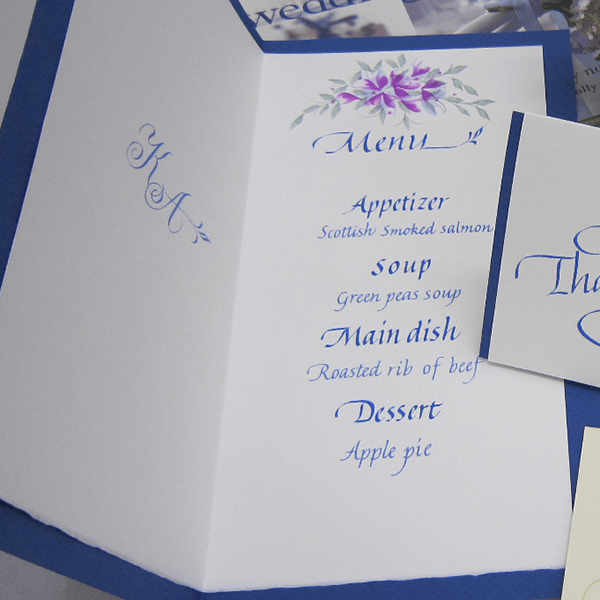 K
A
Menu
Appetizer
Scottish Smoked salmon
Soup
Green peas soup
Main dish
Roasted rib of beef
Dessert
Apple pie